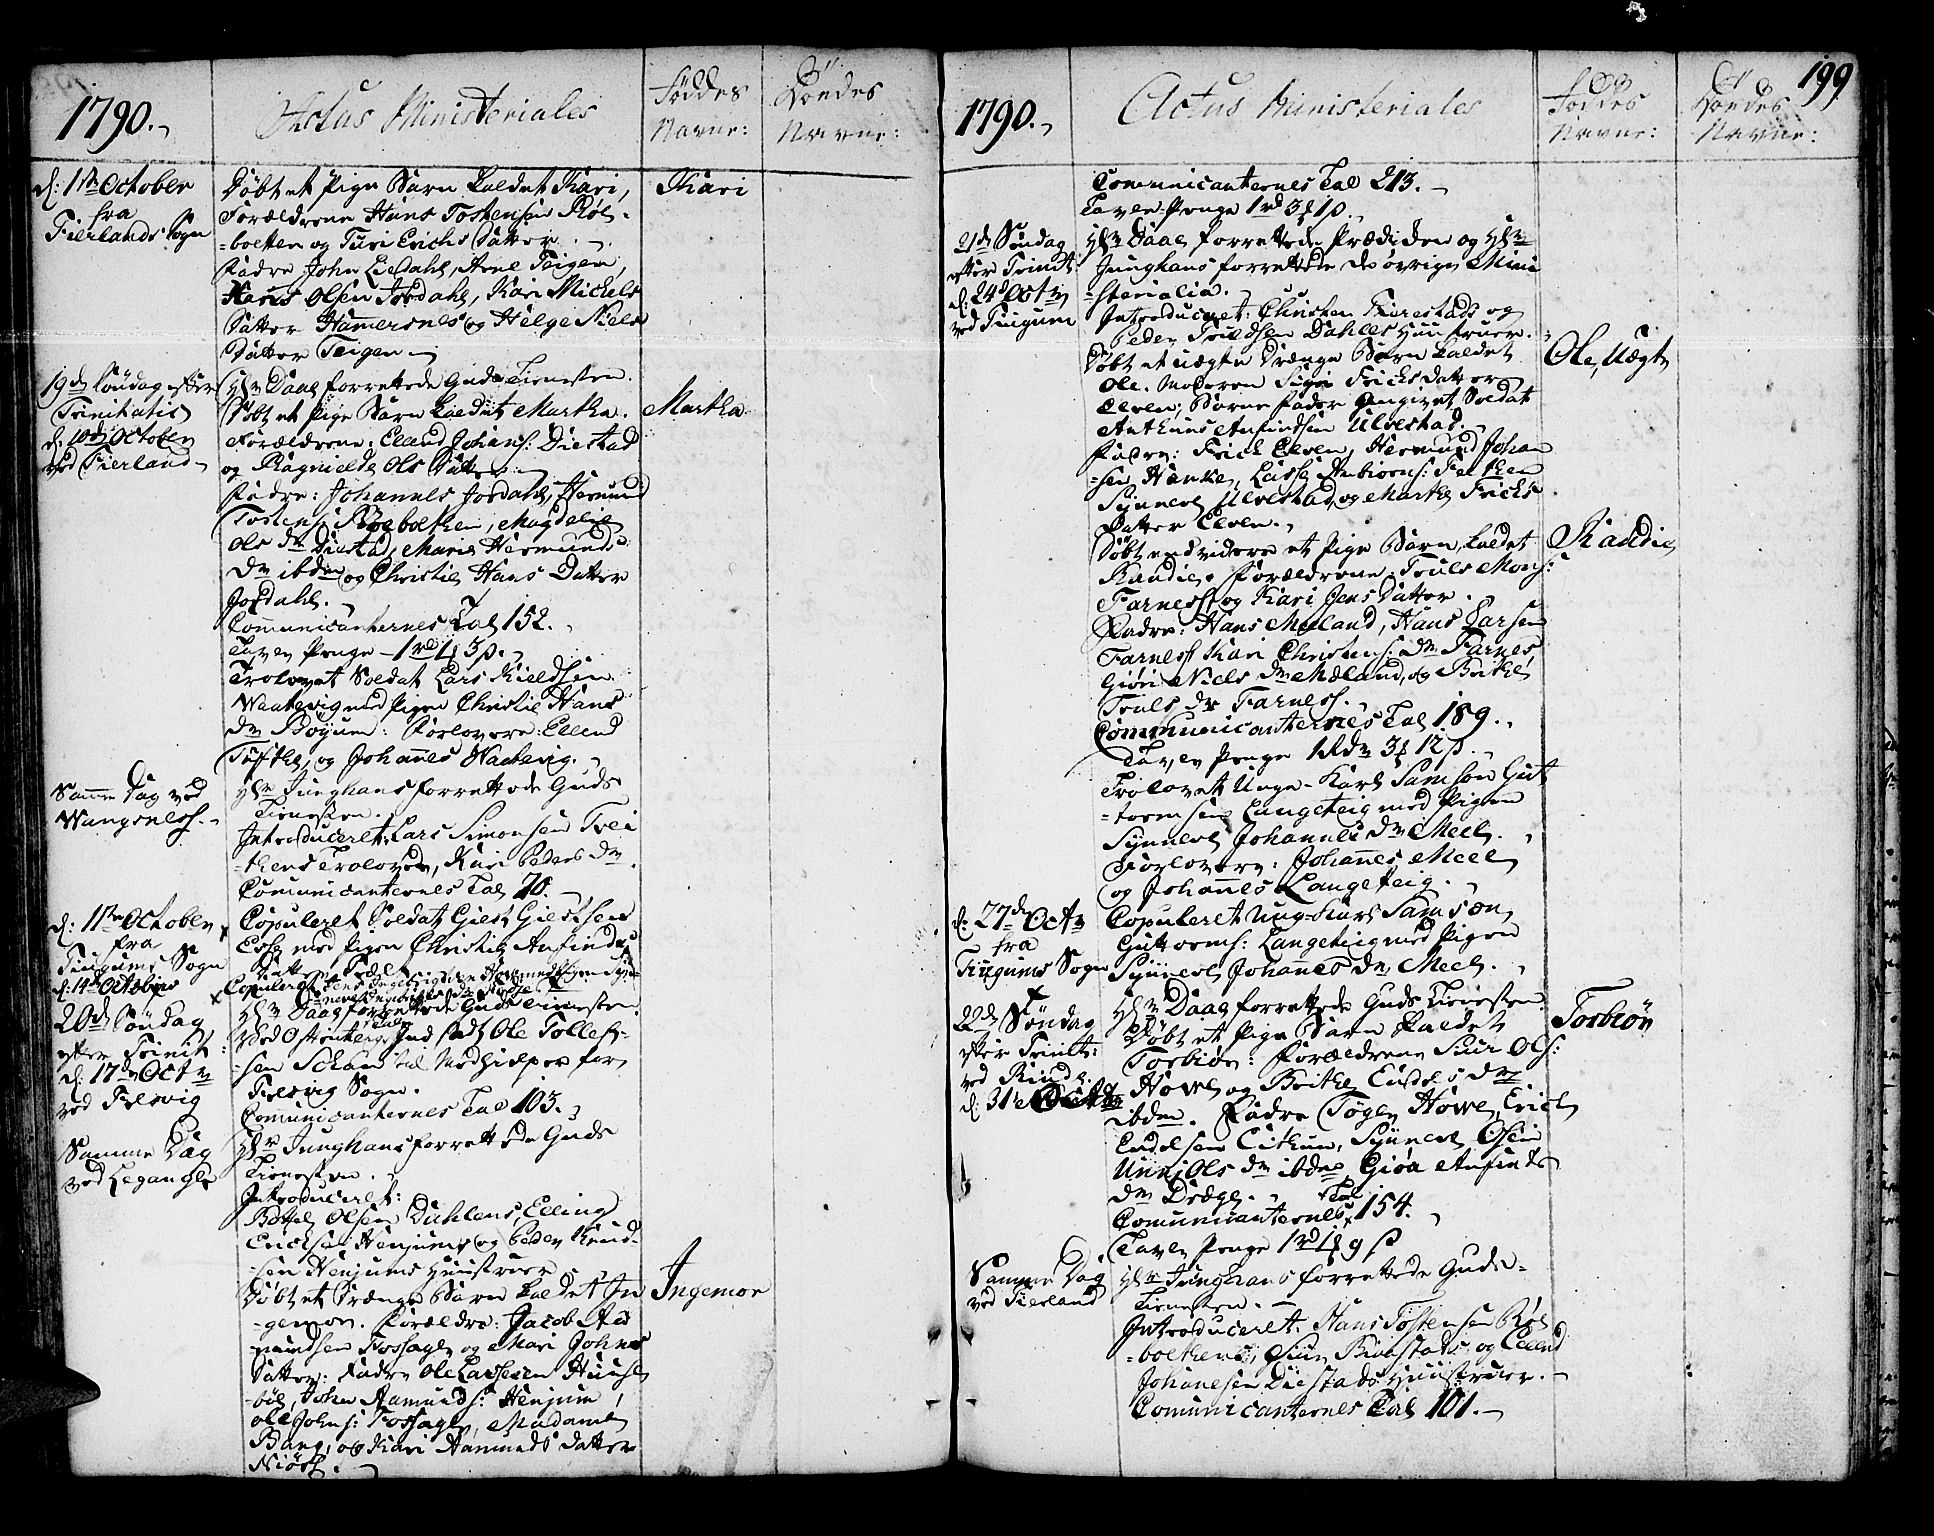 1790.
Actus Ministeriales
Föddes
Navne:
Döedes
Navne:
d: 1ste October
fra
Fierlands Sogn
Döbt et Pige Barn kaldet Kari,
Kari
Forældrene Hans Tostensen Röe-
-boetten og Turi Erichs Datter.
Fadre John Liedahl, Arne Teigen,
Hans Olsen Jordahl, Kari Michels
Datter Hammersnes og Helge Niels
Datter Teigen
19de Söndag efter
Trinitatis
d: 10de October
ved Fierland
Hr Daae forrettede Guds Tienesten.
Döbt et Pige Barn kaldet Martha.
Martha
Forældrene: Ellend Johans: Diestad
og Ragnielde Ols Datter
Fadre: Johannes Jordahl, Hermund
Tostens: Böeboethen, Magdelie
Ols dr Diestad, Marie Hermunds
Dr ibdm og Christie Hans Datter
Jordahl.
Communicanternes Tal 152.
Tavle Penge 1rd 1ƒ 3ß.
Trolovet Soldat Lars Kieldsen
Waatevig med Pigen Christie Hans
dr Böyum: Forlovere: Ellend
Tufthe, og Johannes Waatevig.
Samme Dag ved
Wangsness.
Hr Junghans forrettede Guds
Tienesten.
Introduceret: Lars Simonsen Frei
-thens Trolovede, Kari Peders dr
Comunicanternes Tal 70.
d: 11te October
fra
Tiugums Sogn
d: 14de Octobris
Copuleret Soldat Giest Giestsen
Esse med Pigen Christie Anfinds
Datter
Copuleret Jens Ingebrigtsen
20de Söndag
efter Trinit:
d: 17de Octbr
ved Felsvig
Hr Daae forrettede Guds Tienesten.
Ind sadt Ole Tollef-
-sen Scham til Medhielper for
Felsvig Sogn.
Comunicanternes Tal 103.
Samme Dag
ved Leganger
Hr Junghans forrettede Guds
Tienesten.
Introduceret:
Bottel Olsen Dahlens, Elling
Ericksen Henjums og Peder Knud-
-sen Henjums Huustruer
Döbt et Drænge Barn kaldet In
Ingemor
-gemor. Forældre: Jacob Aa
mundsen Fossage og Mari Johns
Datter: Fadre Ole Lassesen Huuse
-böe, John Aamunds: Henjum,
ole Johns: Fossage, Madame
Bang, og Kari Aamunds datter
Niöss.
199
1790.
Actus Ministeriales
Föddes
Navne:
Döedes
Navne:
Comunicanternes Tal 213.
Tavle-Penge 1rd 3ƒ 1ß.
21de Söndag
efter Trinit
d. 24de Octbr
ved Tiugum
Hr Daae forrettede Prædiken og Hr
Junghans forrettede de övrige Mini
-sterialia.
Introduceret: Christen Fierestads og
Peder Troeldsen Dahles Huustruer.
Döbt et uægte Drænge Barn kaldet
Ole, Uægt
Ole. Moderen Sigri Erichs datter
Elven, Barne Fader angivet Soldat
Anthuns Anfindsen Ulvestad.
Fadre: Erich Elven, Hermund Johan
-sen Hanke, Lasse Anbiörns:
Synneve Ulvestad, og Marthe Erichs
Datter Elven.
Döbt end videre et Pige Barn kaldet
Randie
Randie. Forældrene: Truls Mons:
Farness og Kari Jens Datter.
Fadre: Hans Meland, Hans Larsen
Farness Kari Christens: dr Farnes
Giöri Niels dr Mæland, og Brithe
Truls dr Farness.
Communicanternes Tal 189.
Tavle Penge 1Rdr 3ƒ 12ß.
Trolovet Unge-Karl Samson Gut
-tormsen Langeteig med Pigen
Synneve Johannes dr Meel.
Forlovere: Johannes Meel
og Johannes Langeteig.
d: 27de Octbr
fra
Tiugums Sogn
Copuleret Ung-Karl Samson
Guttorms: Langeteig med Pigen
Synneve Johannes dr Meel.
22de Söndag
efter Trinit:
ved Rinde
d: 31te Octbr
Hr Daae forrettede Guds Tienesten
Döbt et Pige Barn kaldet
Torbiör
Torbiör: Forældrene Siur Ols:
Howe og Brithe Endels dr
ibdm. Fadre Töge Howe, Erich
Endelsen Eithun, Synneve Olsen
Unni Ols dr ibdm, Giöa Anfinds
dr Dræge.
Comunicanternes Tal 154.
Tavle Penge 1rd 1ƒ 9ß
Samme Dag
ved Fierland
Hr Junghans forrettede Guds-
Tienesten.
Introduceret: Hans Tostensen Röe
-boethens, Siur Biaastads og Ellend
Johanesen Diestads Huustruer.
Comunicanternes Tal 101.